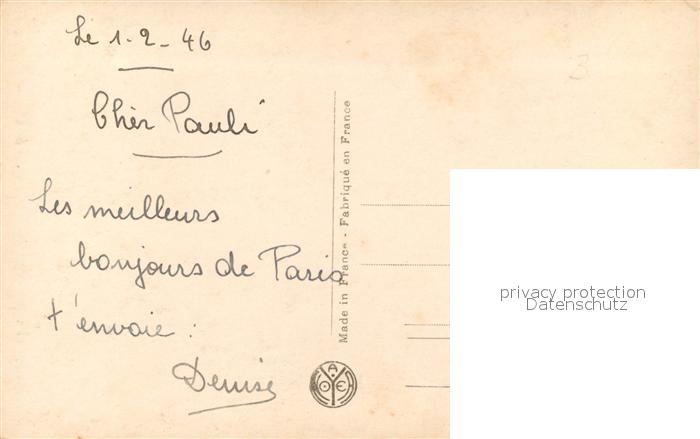 Le 1-2-46
Chèr Pauli
Les meilleurs
bonjours de Paris
t'envoie :
Denise
Made in France - Fabriqué en France
3
privacy protection
Datenschutz